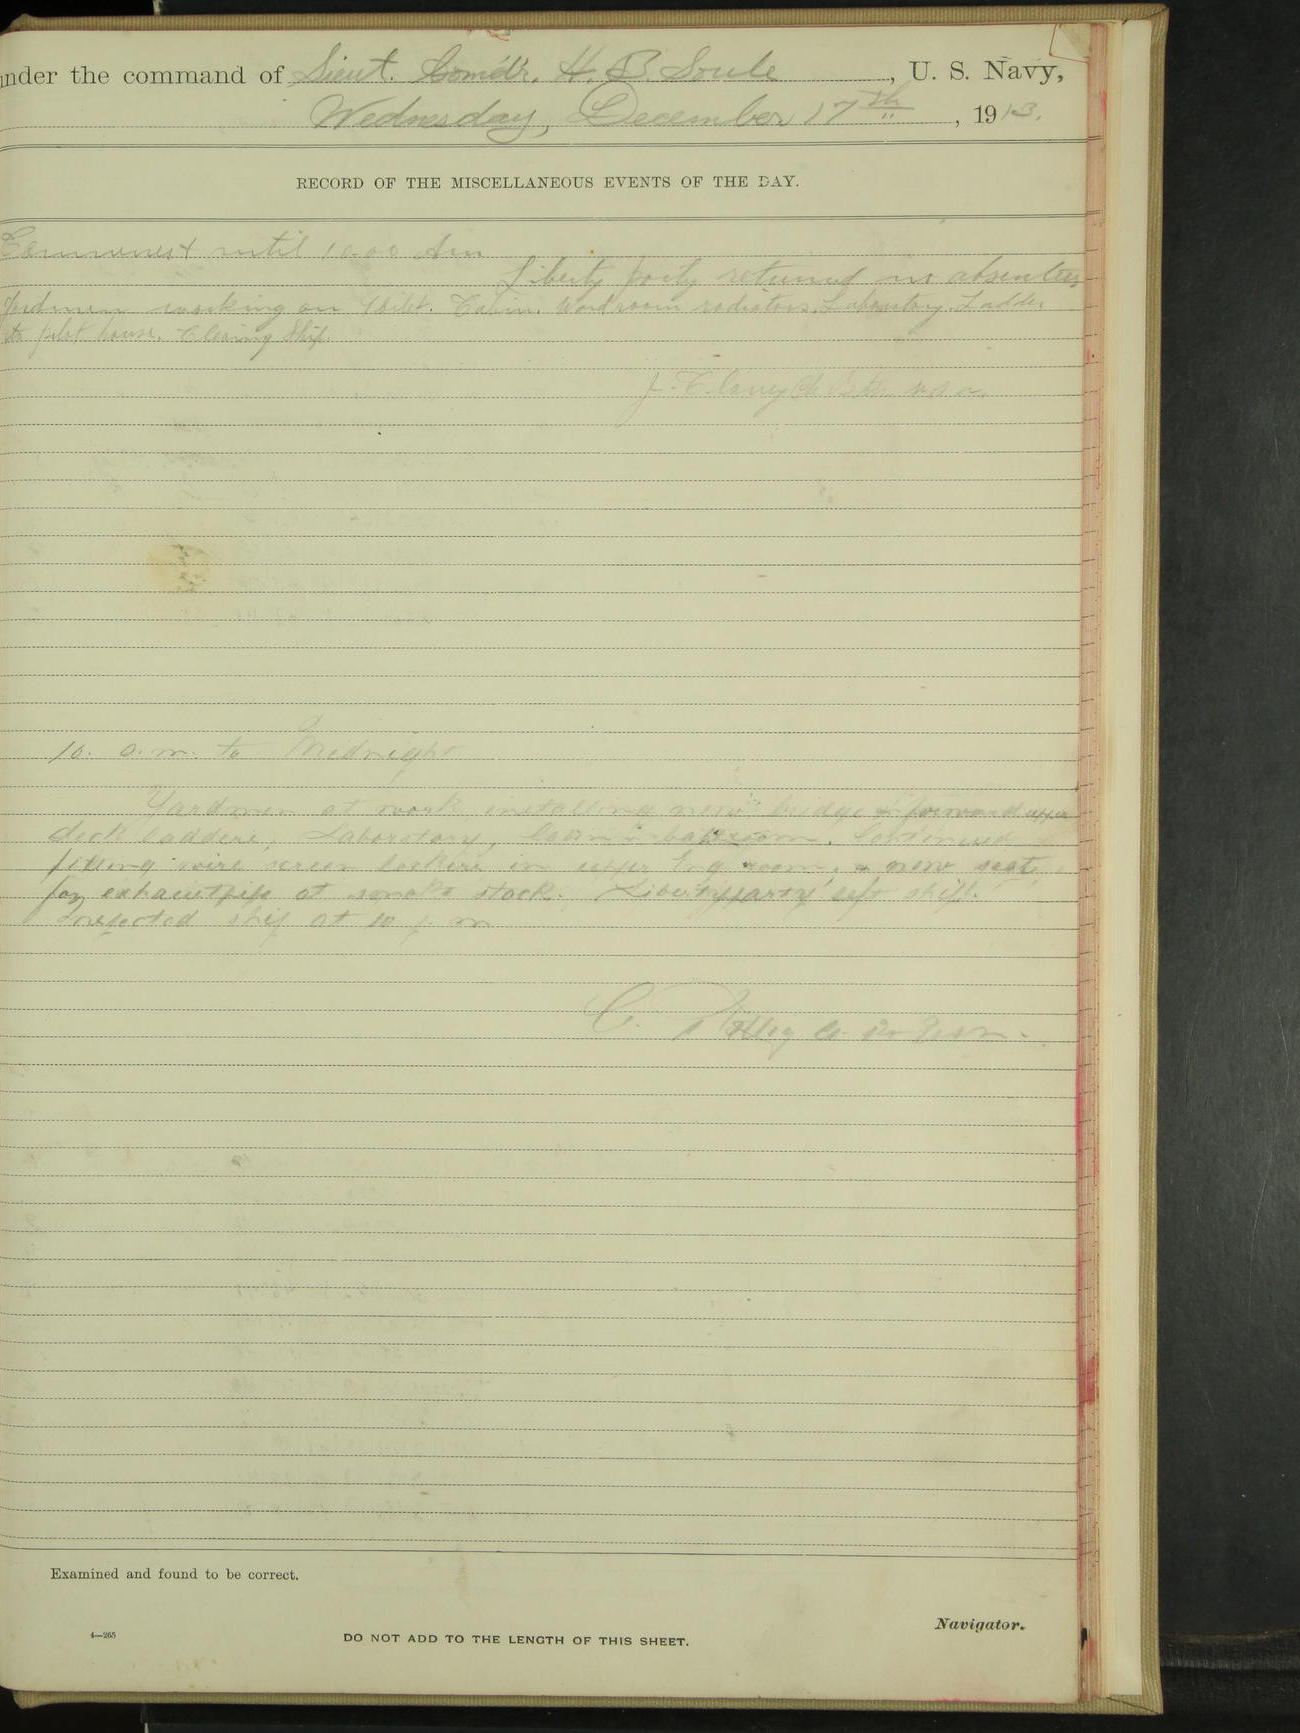 under the command of Lieut. Comdr. H. B. Soule, U. S. Navy,
Wednesday, December 17th, 1913.
RECORD OF THE MISCELLANEOUS EVENTS OF THE DAY.
until 10-00 Am
Liberty party returned no absentees
Yardmen working on Cabin. Wardroom radiators. Laboratory. Ladder
to pilot house. Cleaning Ship.
J. Clancy
10. a.m. to Midnight
Yardmen at work installing new bridge & forward upper
deck ladders, Laboratory, Cabin bathroom. Continued
fitting wire screen lockers in upper Eng room. & new seat
for exhaustpipe at smoke stack. Liberty party left ship.
Inspected ship at 10 p. m
C.
Examined and found to be correct.
Navigator.
4—265
DO NOT ADD TO THE LENGTH OF THIS SHEET.